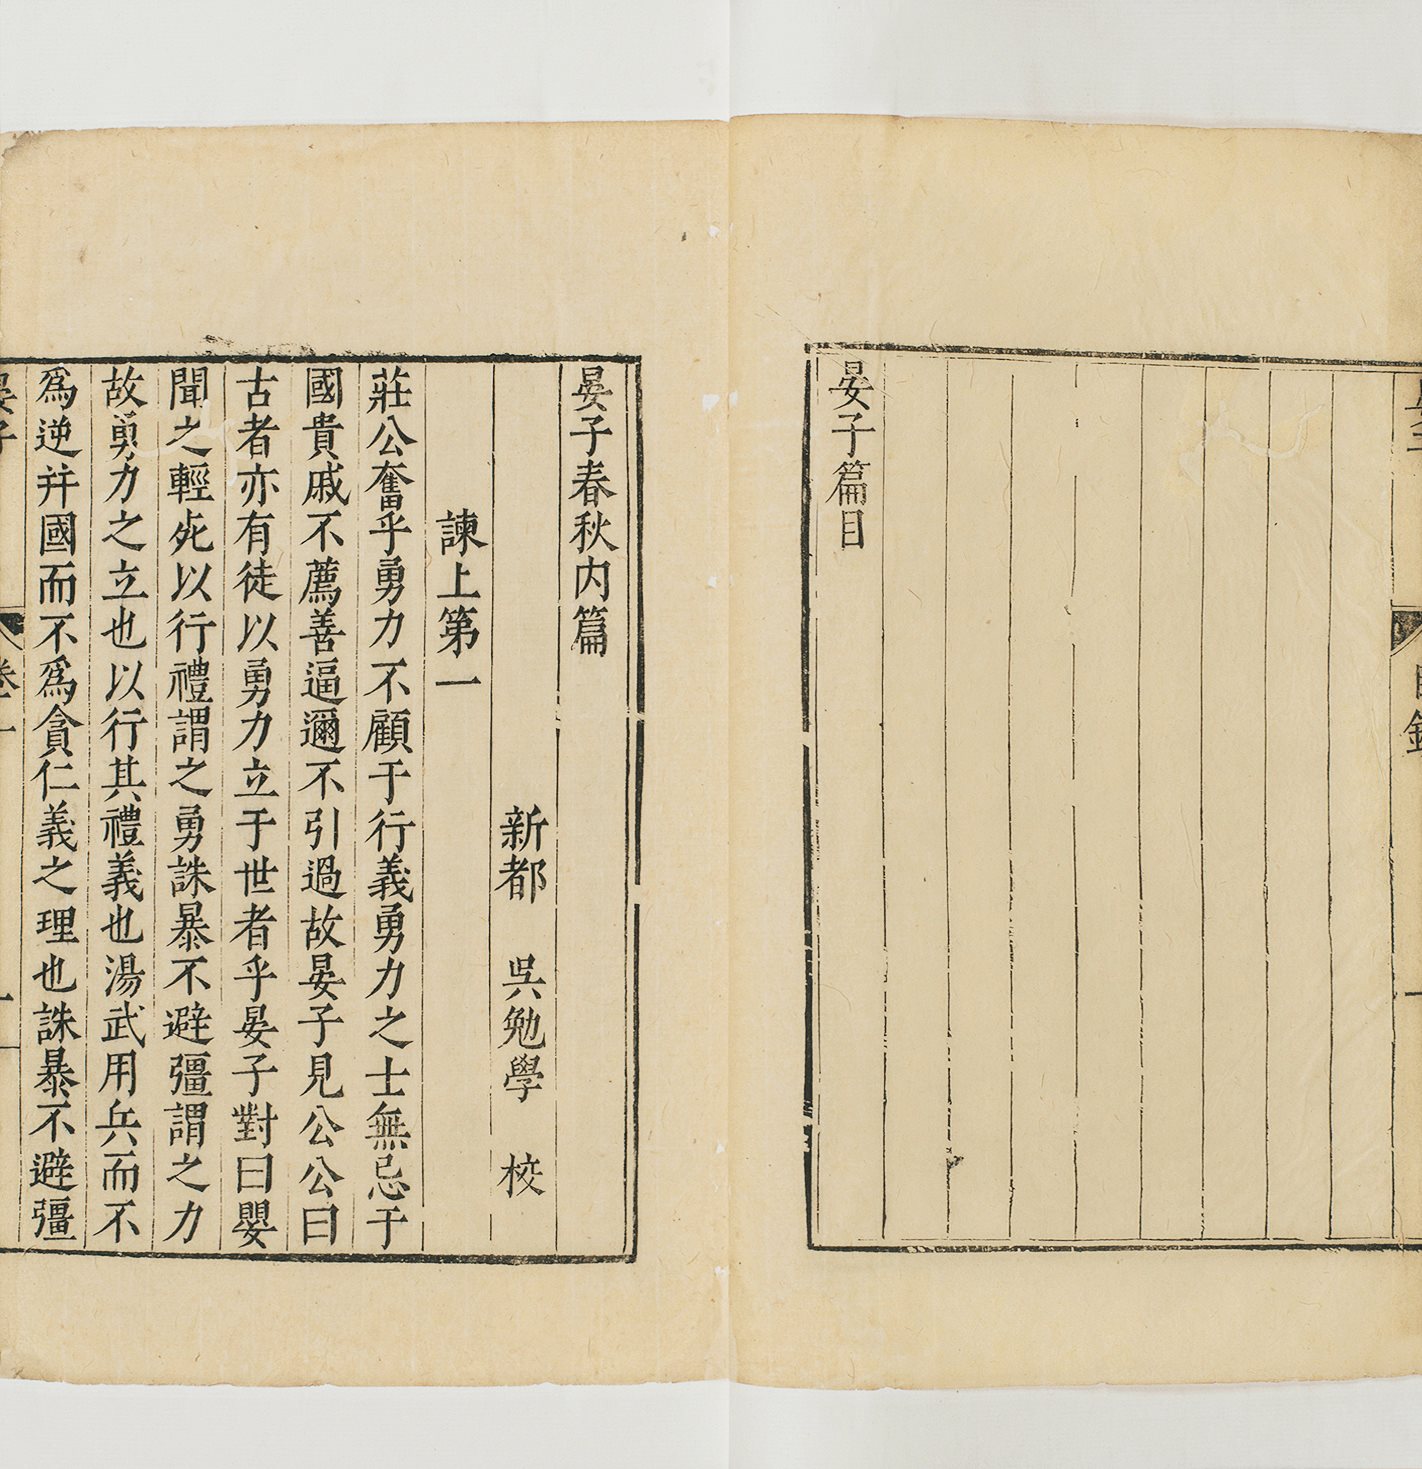 晏子篇目
晏子春秋内篇
新都　吳勉學　校
諫上第一
莊公奮乎勇力不顧于行義勇力之士無忌于
國貴戚不薦善逼邇不引過故晏子見公公曰
古者亦有徒以勇力立于世者乎晏子對曰嬰
聞之輕死以行禮謂之勇誅暴不避彊謂之力
故勇力之立也以行其禮義也湯武用兵而不
為逆并國而不為貪仁義之理也誅暴不避彊